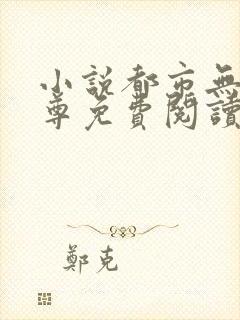 小說都市無
尊免費閱讀
鄭克